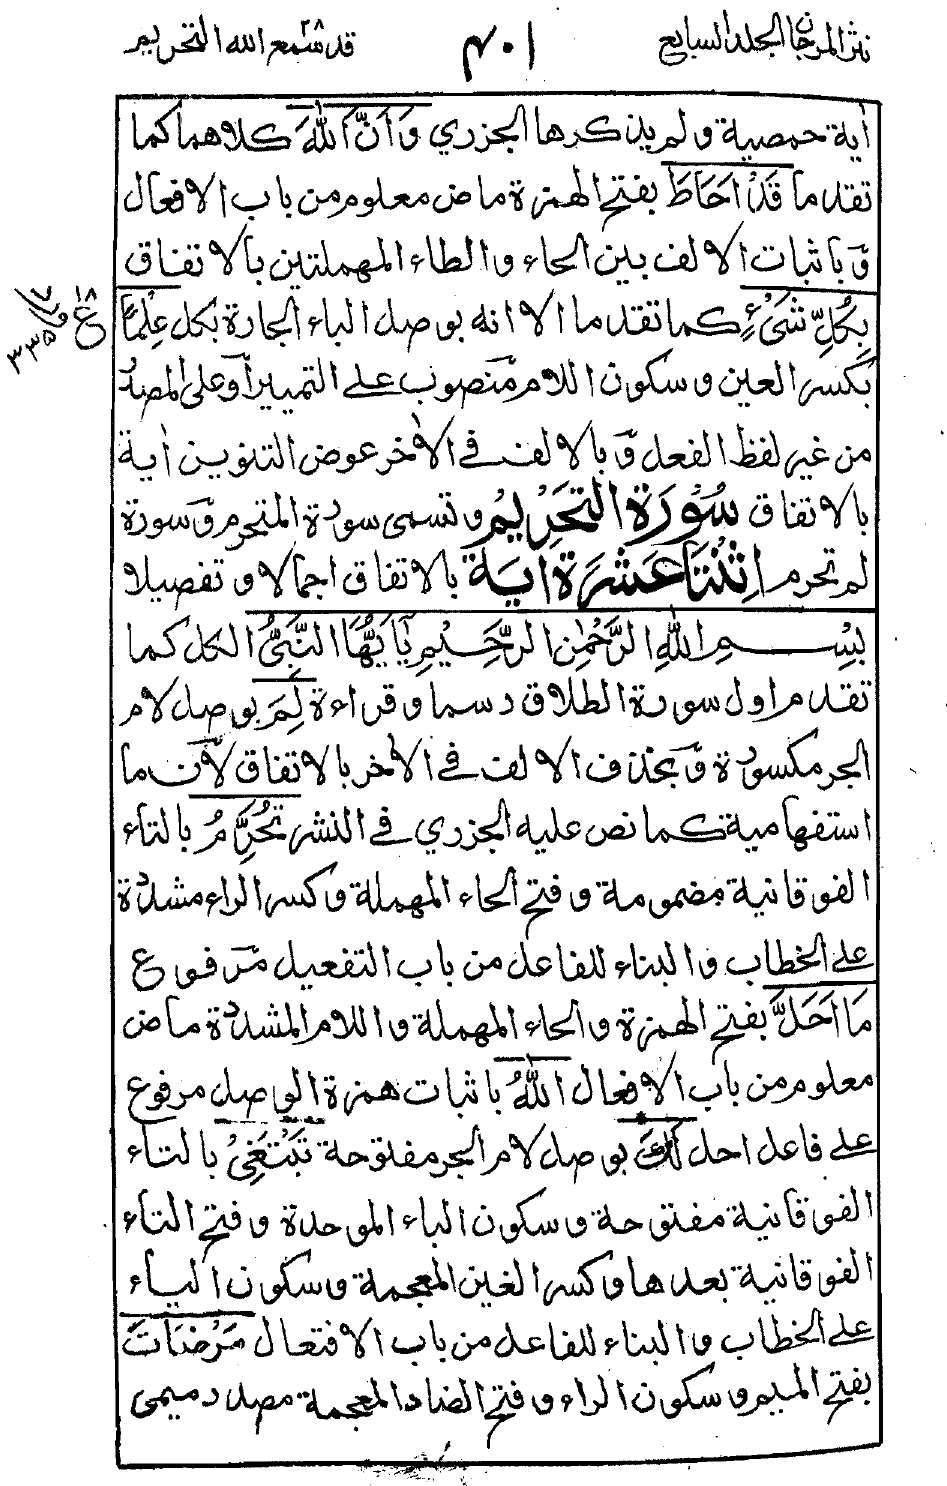 نثر المرجان الجلد السابع
٤٠١
قد سمع الله ٢٨ التحريم
اٰية حمصية ولم يذكرها الجزري وَاَنَّ اللّٰهَ كلاهما كما
تقدما قَدْ اَحَاطَ بفتح الهمزة ماض معلوم من باب الافعال
وّباثبات الالف بين الحاء والطاء المهملتين بالاتفاق
بِكُلِّ شَيْءٍ كما تقدما الا انه بوصل الباء الجارة بكل عِلْمًا
بكسر العين وسكون اللام منصوب على التمييز او على المصد
من غير لفظ الفعل وّبالالف في الاٰخر عوض التنوين اٰية
بالاتفاق سُوْرَةُ التَّحْرِيْمِ وتسمى سورة المتحرم وّسورة
لم تحرم اِثْنَتَا عَشْرَةَ اٰيَة بالاتفاق اجمالا وتفصيلا
بِسْمِ اللّٰهِ الرَّحْمٰنِ الرَّحِيْمِ يٰۤاَيُّهَا النَّبِيُّ الكل كما
تقدم اول سورة الطلاق رسما وقراءة لِمَ بوصل لام
الجر مكسورة وّبحذف الالف في الاٰخر بالاتفاق لاَن ما
استفهامية كما نص عليه الجزري في النشر تُحَرِّمُ بالتاء
الفوقانية مضمومة وفتح الحاء المهملة وكسر الراء مشددة
على الخطاب والبناء للفاعل من باب التفعيل مرفوع
مَا اَحَلَّ بفتح الهمزة والحاء المهملة واللام المشددة ماض
معلوم من باب الافعال اللّٰهُ باثبات همزة الوصل مرفوع
على فاعل احل لَكَ بوصل لام الجر مفتوحة تَبْتَغِيْ بالتاء
الفوقانية مفتوحة وسكون الباء الموحدة وفتح التاء
الفوقانية بعدها وكسر الغين المعجمة وسكون الياء
على الخطاب والبناء للفاعل من باب الافتعال مَرْضَاتَ
بفتح الميم وسكون الراء وفتح الضاد المعجمة مصدر ميمي
١٨
ع
٣٣٥